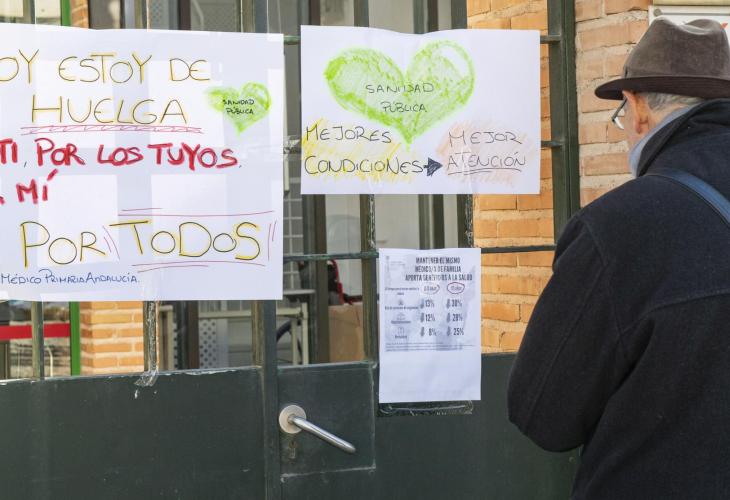 OY ESTOY DE
HUELGA
SANIDAD
PÚBLICA
TI, POR LOS TUYOS,
MÍ
POR TODOS
MÉDICO PRIMARIA ANDALUCÍA.
SANIDAD
PÚBLICA
MEJORES
CONDICIONES
MEJOR
ATENCIÓN
MANTENER EL MISMO
MÉDICO/A DE FAMILIA
APORTA BENEFICIOS A LA SALUD
13% 30%
12% 28%
8% 25%